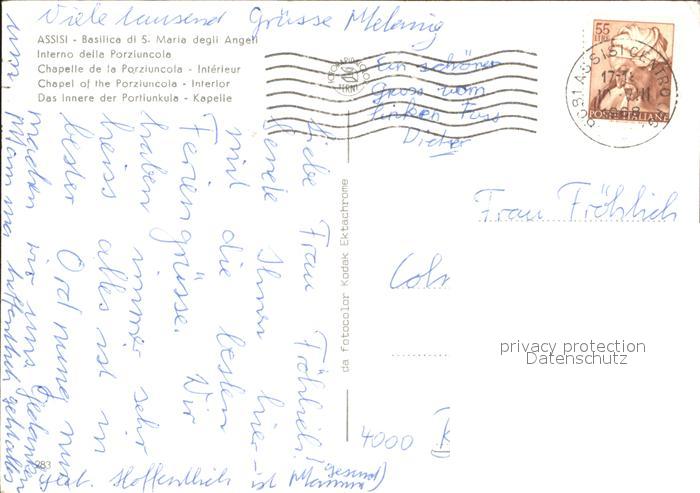 Viele tausend Grüsse Melanig
ASSISI - Basilica di S. Maria degli Angeli
Interno della Porziuncola
Chapelle de la Porziuncola - Intérieur
Chapel of the Porziuncola - Interior
Das Innere der Portiunkula - Kapelle
Ein schöner
Gruss vom
linken Fuss
Dieter
55
LIRE
POSTE ITALIANE
ASSISI CENTRO
Liebe Frau Fröhlich!
sende Ihnen hier-
mit die besten
Feriengrüsse. Wir
haben immer sehr
heiss alles ist in
bester Ordnung nur
machen wir uns Gedanken
um,
Hoffentlich ist Mamma gesund
hoffentlich geht alles
da fotocolor Kodak Ektachrome
Frau Fröhlich
Coln
4000
283
privacy protection
Datenschutz